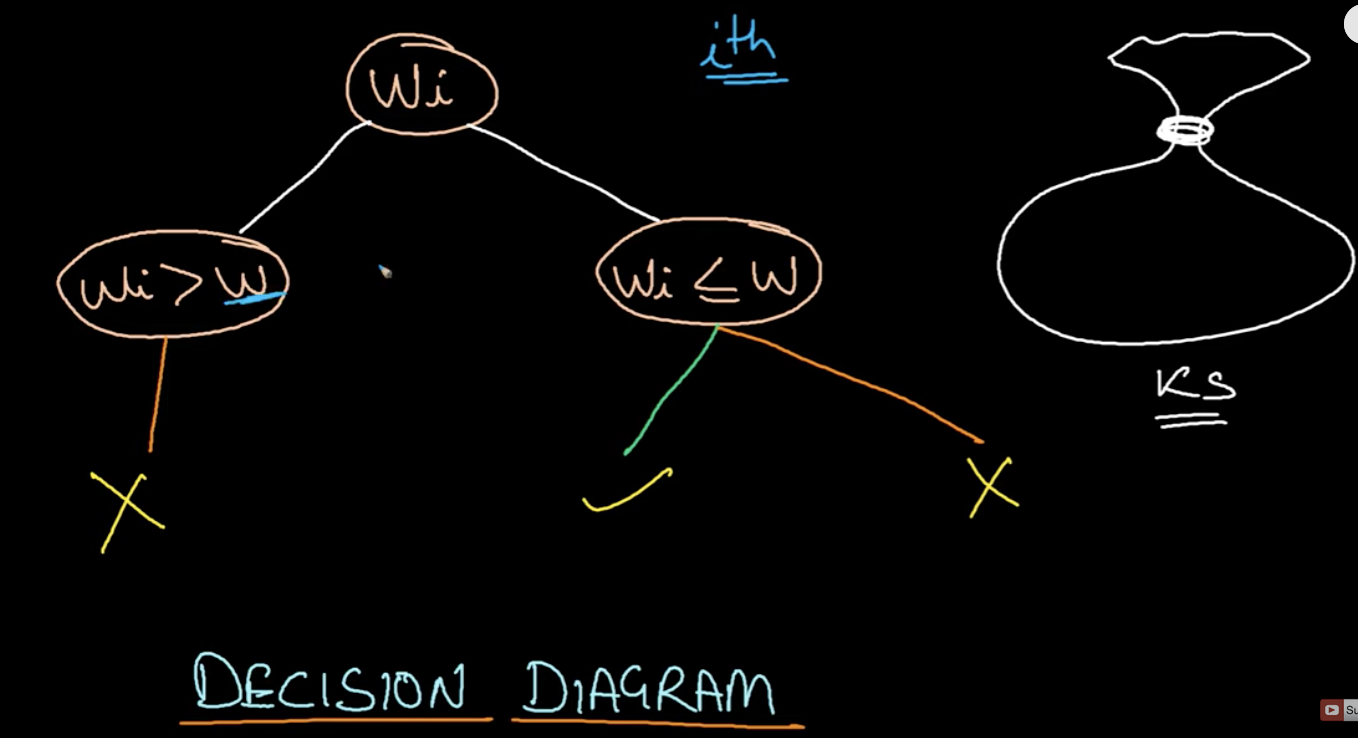 ith
Wi
Wi > W
Wi ≤ W
KS
DECISION DIAGRAM
Su